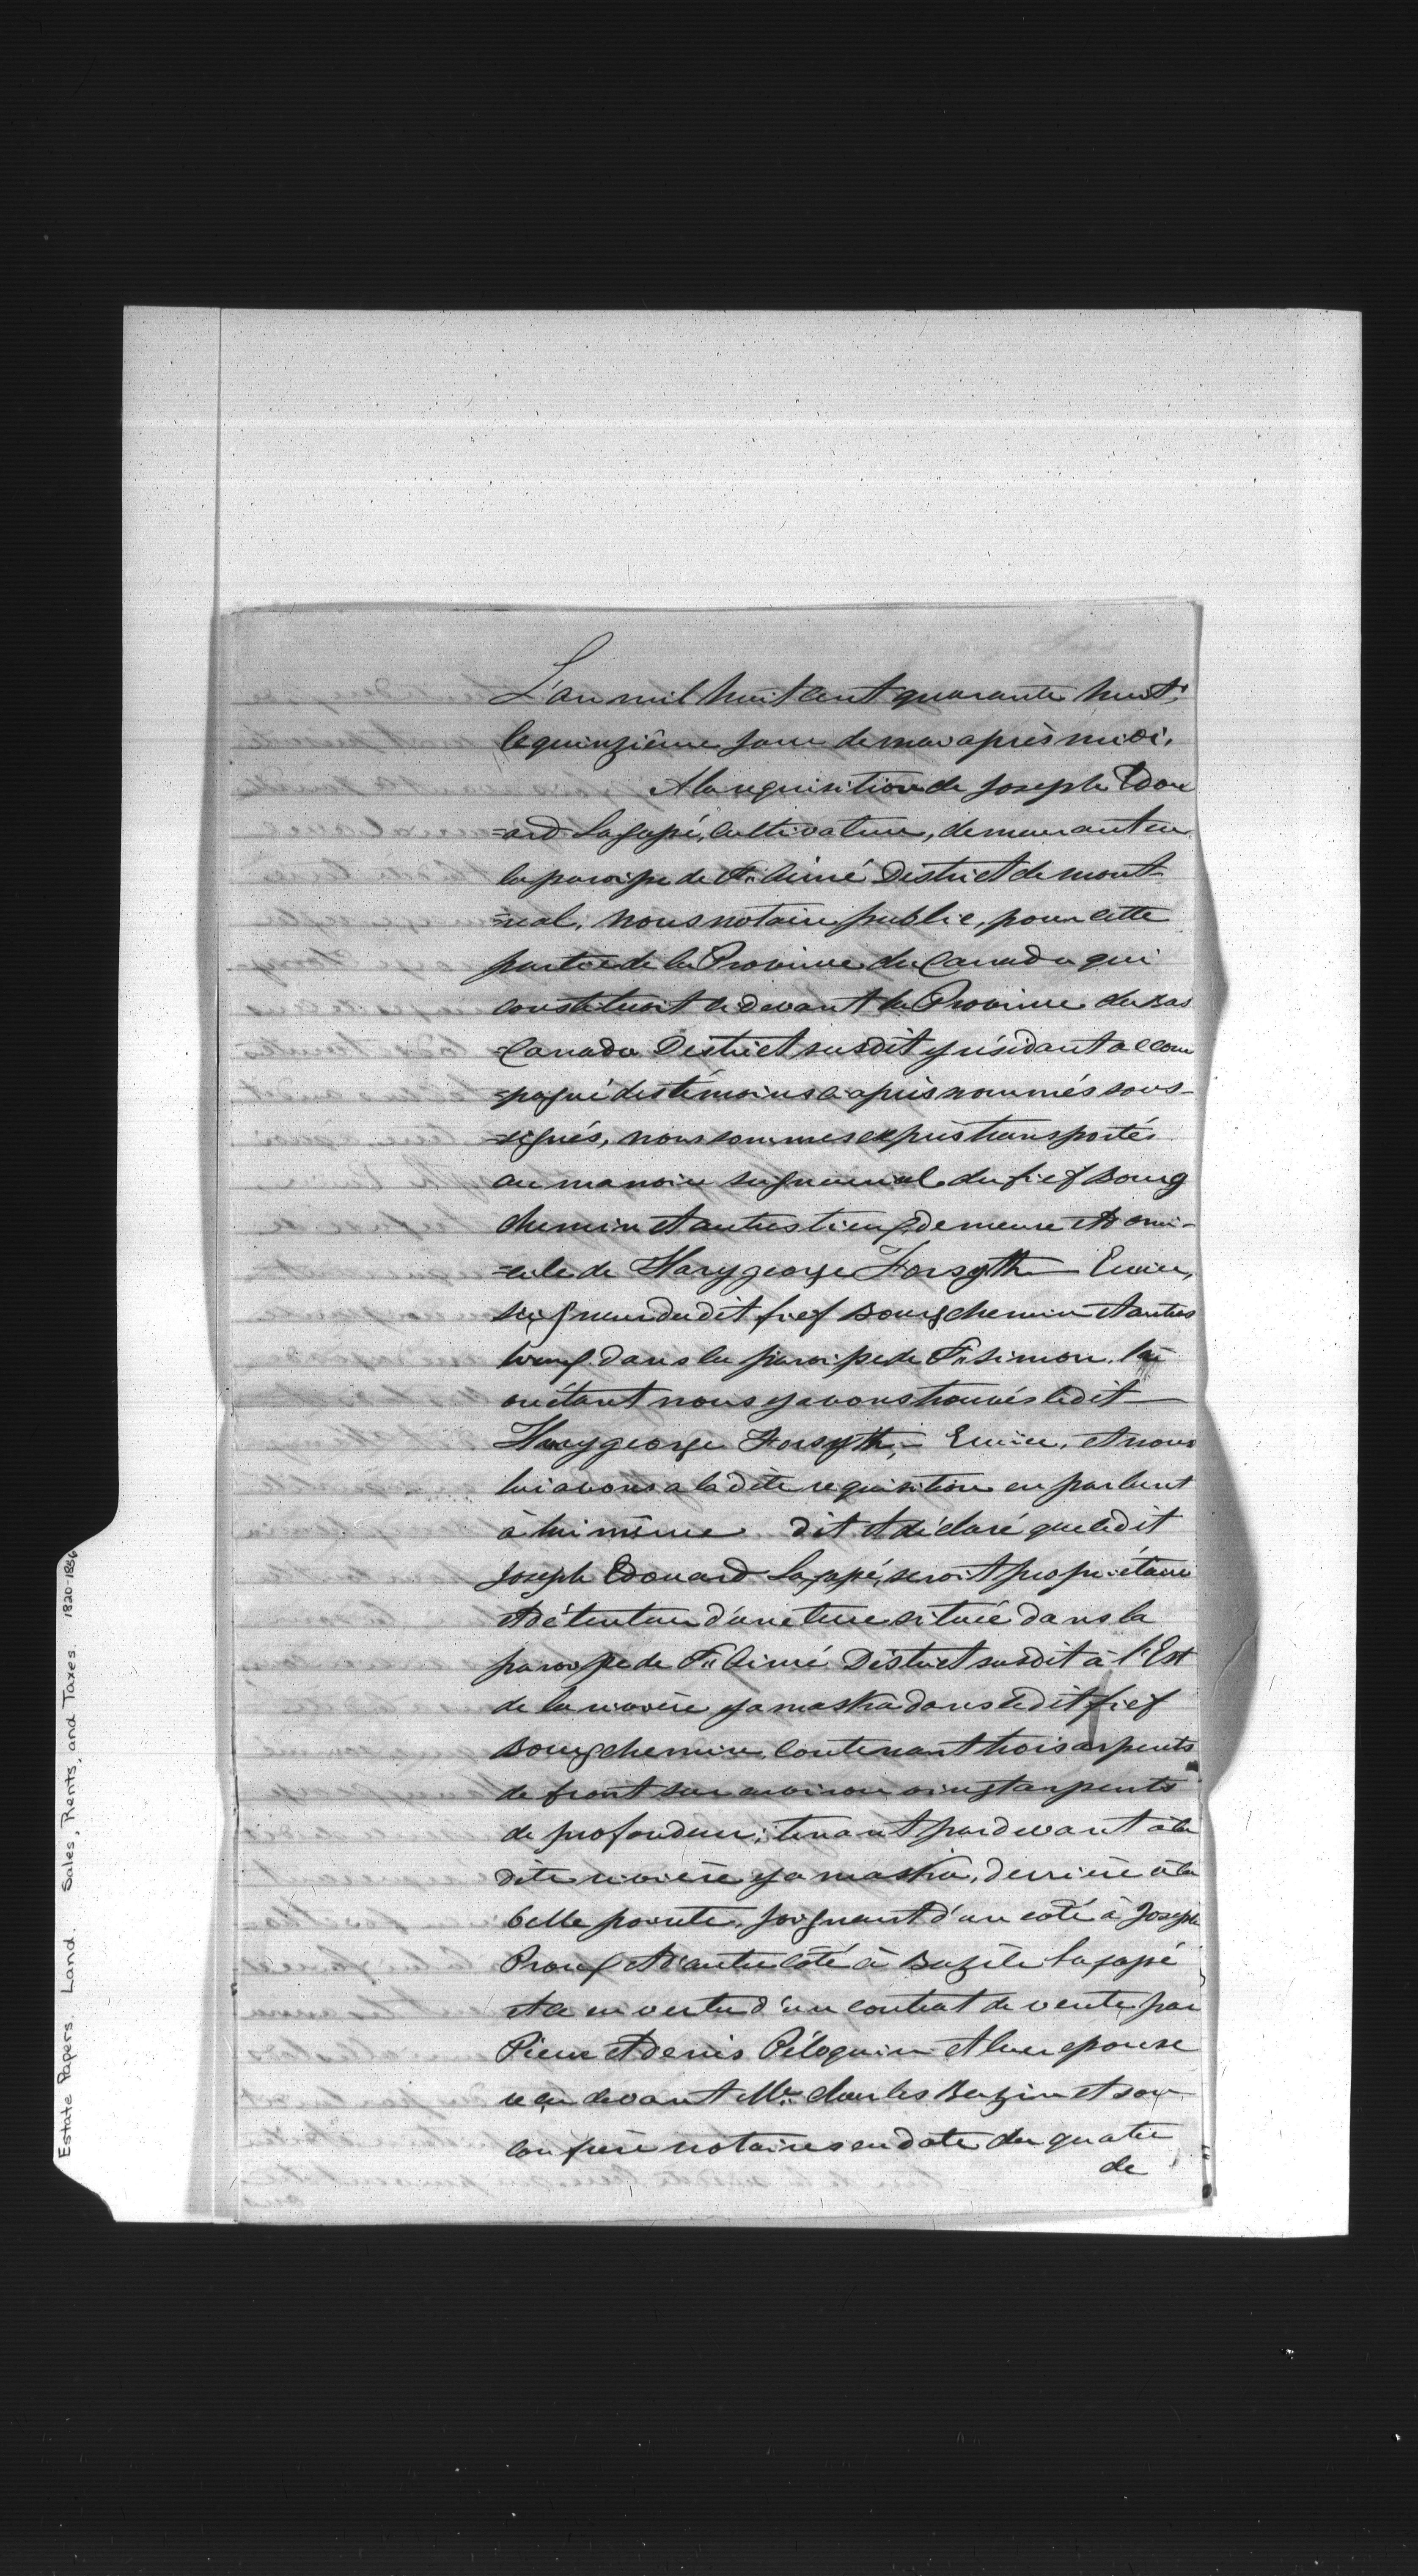 L'an mil huit cent quarante huit,
le quinzième jour de mai après midi.
A la requisition de Joseph Edou
=ard Lagapé, cultivateur, demeurant en
la paroisse de St. Aimé District de mont-
=réal, nous notaire public, pour cette
partie de la Province du Canada qui
constituoit ci devant la Province du Bas
=Canada District susdit y résidant accom
=pagné des témoins ci après nommés sous-
=signés, nous sommes exprès transportés
au manoir seigneurial du fief Bourg
chemin et autres lieux, demeure et domi-
=cile de Hary george Forsyth Ecuier,
seigneur du dit fief Bourgchemin et autres
lieux dans la paroisse de St. Simon. là
où étant nous y avons trouvés le dit
Hary george Forsyth, Ecuier, et nous
lui avons a la dite requisition en parlant
à lui même dit et déclaré que le dit
Joseph Edouard Lagapé, seroit propriétaire
et détenteur d'une terre située dans la
paroisse de St. Aimé District susdit à l'Est
de la rivière yamaska dans le dit fief
Bourgchemin, contenant trois arpents
de front sur environ vingt arpents
de profondeur, tenant par devant à la
dite rivière yamaska, derrière à la
belle pointe, joignant d'un coté à Joseph
Proux et d'autre côté à Bazile Lagapé
et ce en vertu d'un contrat de vente par
Pierre et denis Péloquin et leur epouse
reçu devant Mtre. Charles Bazin et son
confrère notaires en date du quatre
de
Estate Papers. Land. Sales, Rents, and Taxes. 1820-1856